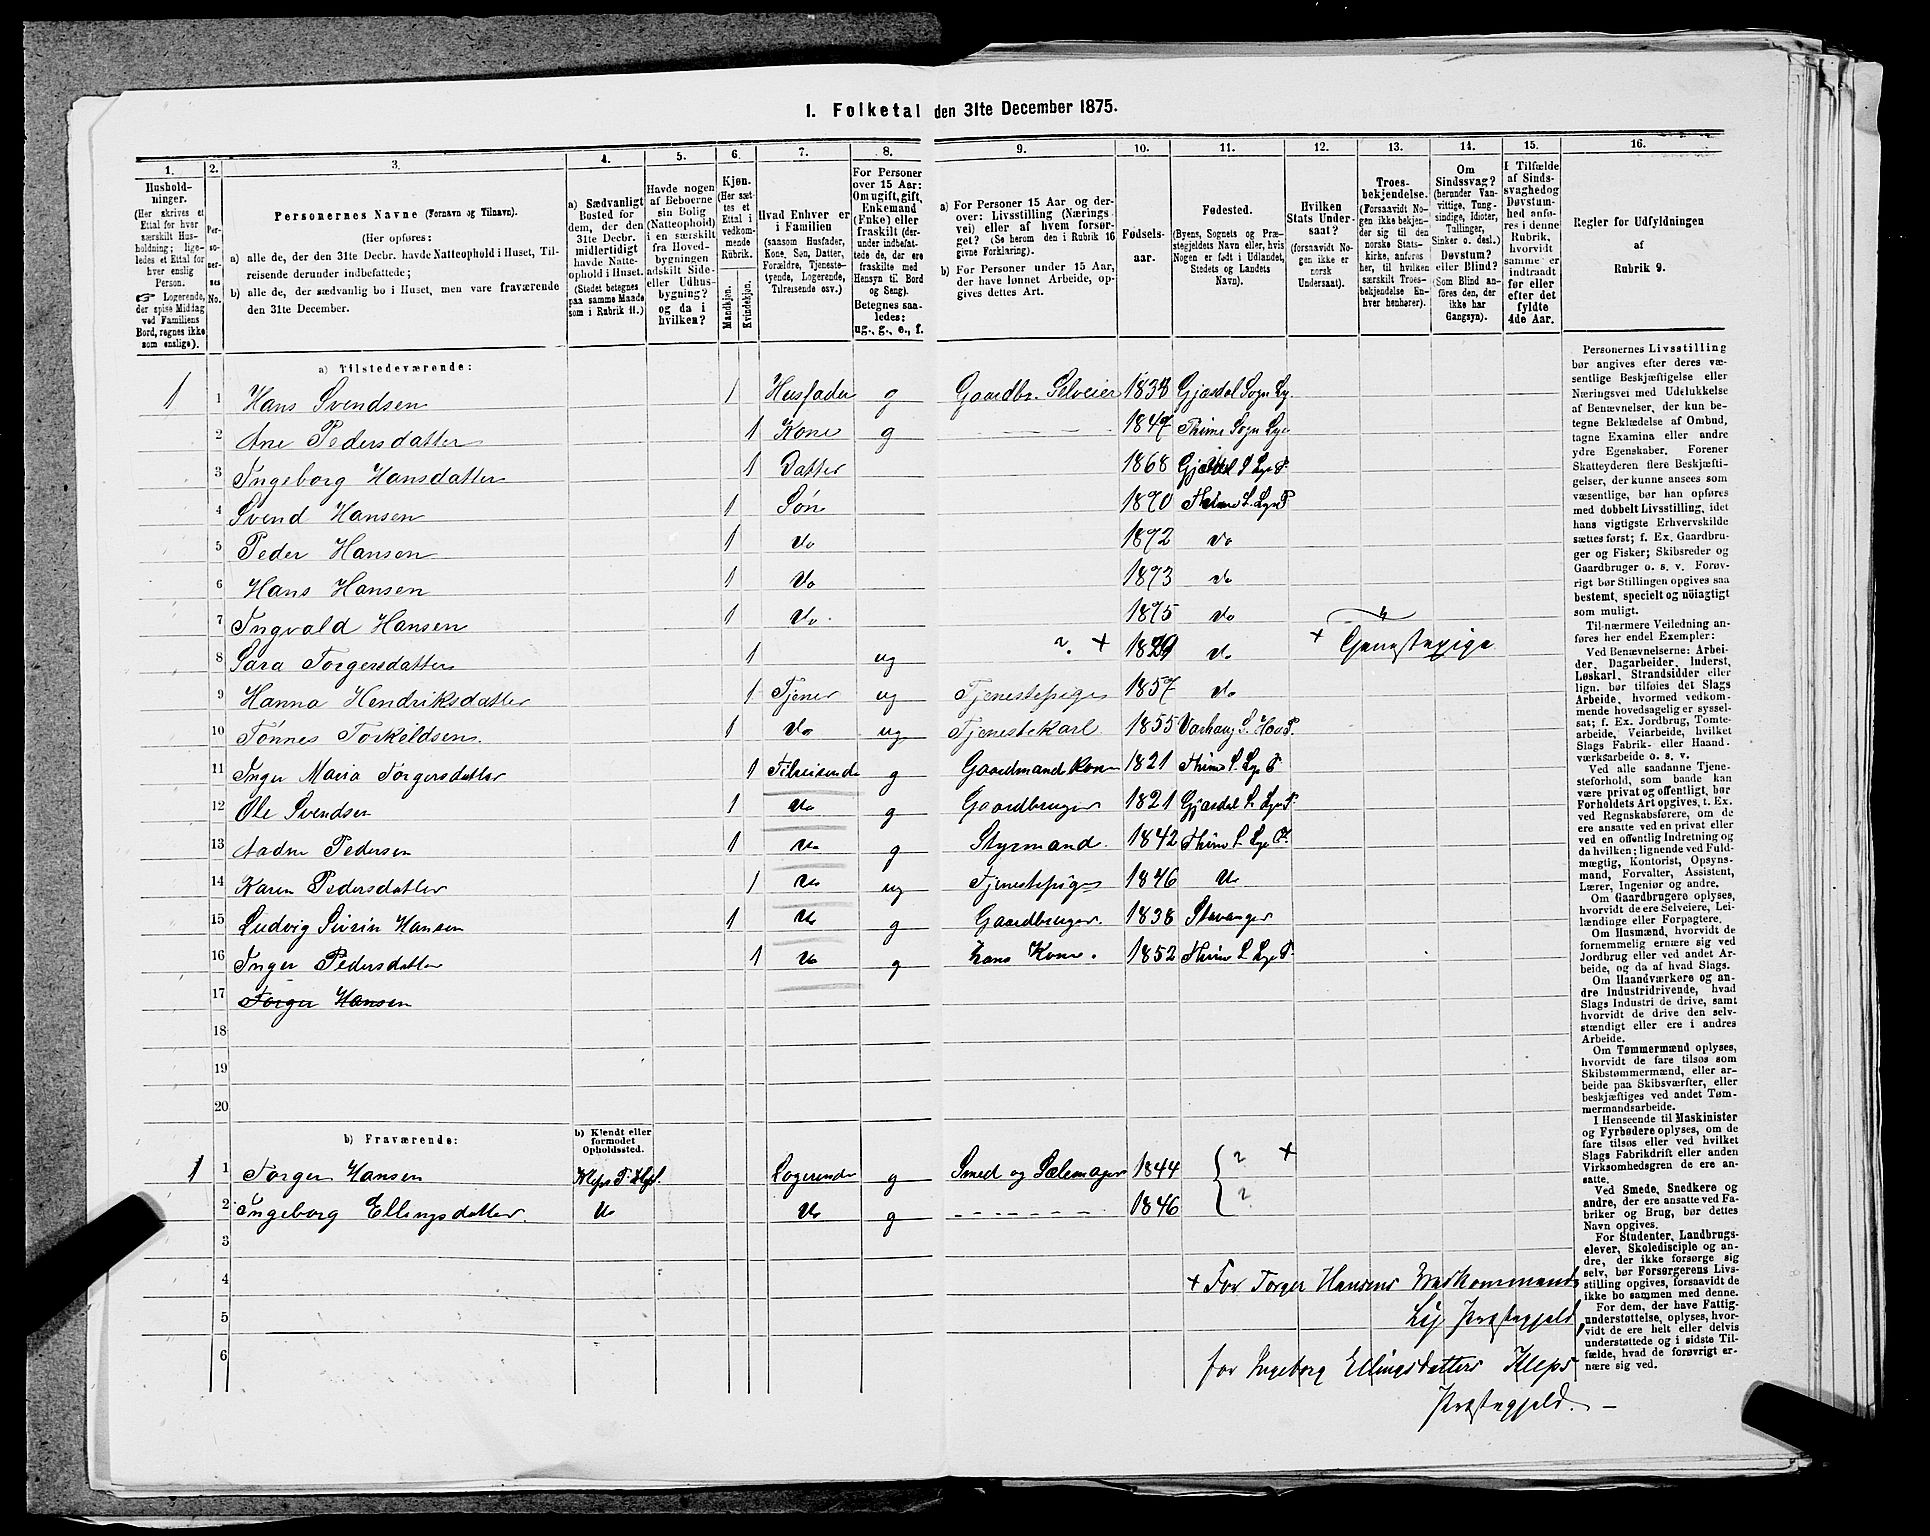 I. Folketal den 31te December 1875.
1. 2. 3. 4. 5. 6. 7. 8. 9. 10. 11. 12. 13. 14. 15. 16.
Husholdninger. (Her skrives et Ettal for hver særskilt Husholdning; ligeledes et Ettal for hver enslig Person. ☞ Logerende, der spise Middag ved Familiens Bord, regnes ikke som enslige).
Personernes No.
Personernes Navne (Fornavn og Tilnavn).
(Her opføres:
a) alle de, der den 31te Decbr. havde Natteophold i Huset, Tilreisende derunder indbefattede;
b) alle de, der sædvanlig bo i Huset, men vare fraværende den 31te December.
a) Sædvanligt Bosted for dem, der den 31te Decbr. midlertidigt havde Natteophold i Huset. (Stedet betegnes paa samme Maade som i Rubrik 11.)
Havde nogen af Beboerne sin Bolig (Natteophold) i en særskilt fra Hovedbygningen adskilt Side- eller Udhusbygning? og da i hvilken?
Kjøn. (Her sættes et Ettal i vedkommende Rubrik. Mandkjøn. Kvindekjøn.
Hvad Enhver er i Familien (saasom Husfader, Kone, Søn, Datter, Forældre, Tjenestetyende, Logerende, Tilreisende osv.)
For Personer over 15 Aar: Om ugift, gift, Enkemand (Enke) eller fraskilt (derunder indbefattede de, der ere fraskilte med Hensyn til Bord og Seng). Betegnes saaledes: ug., g., e., f.
a) For Personer 15 Aar og derover: Livsstilling (Næringsvei) eller af hvem forsørget? (Se herom den i Rubrik 16 givne Forklaring).
b) For Personer under 15 Aar, der have lønnet Arbeide, opgives dettes Art.
Fødselsaar.
Fødested. (Byens, Sognets og Præstegjeldets Navn eller, hvis Nogen er født i Udlandet, Stedets og Landets Navn).
Hvilken Stats Undersaat? (forsaavidt Nogen ikke er norsk Undersaat).
Troesbekjendelse. (Forsaavidt Nogen ikke bekjender sig til den norske Statskirke, anføres her, til hvilken særskilt Troesbekjendelse Enhver henhører).
Om Sindssvag? (herunder Vanvittige, Tungsindige, Idioter, Tullinger, Sinker o. desl.) Døvstum? eller Blind? (Som Blind anføres den, der ikke har Gangsyn).
I Tilfælde af Sindssvaghed og Døvstumhed anføres i denne Rubrik, hvorvidt samme er indtraadt før eller efter det fyldte 4de Aar.
Regler for Udfyldningen af Rubrik 9.
a) Tilstedeværende:
1 1 Hans Svendsen 1 Husfader g Gaardbr. Selveier 1833 Gjæsdal Sogn Ly.
2 Ane Pedersdatter 1 Kone g 1847 Thime Sogn Lye
3 Ingeborg Hansdatter 1 Datter 1868 Gjæsdal S. Lye P.
4 Svend Hansen 1 Søn 1870 Thime S. Lye P
5 Peder Hansen 1 do 1872 do
6 Hans Hansen 1 do 1873 do
7 Ingvald Hansen 1 do 1875 do
8 Sara Torgersdatter 1 ug ? + 1829 do + Tjenestepige
9 Hanna Hendriksdatter 1 Tjener ug Tjenestepige 1857 do
10 Tønnes Torkeldsen 1 do ug Tjenestekarl 1855 Varhaug S. Haa P.
11 Inger Maria Torgersdatter 1 Tilreisende g Gaardmandskone 1821 Thime S. Lye P
12 Ole Svendsen 1 do g Gaardbruger 1821 Gjæsdal S. Lye P.
13 Aadne Pedersen 1 do g Styrmand. 1842 Thime S. Lye P.
14 Karen Pedersdatter 1 do ug Tjenestepige 1846 do
15 Ludvig Sivrin Hansen 1 do g Gaardbruger. 1838 Stavanger
16 Inger Pedersdatter 1 do g hans Kone. 1852 Thime S. Lye P.
17 Torger Hansen
18
19
20
b) Fraværende: b) Kjendt eller formodet Opholdssted.
1 1 Torger Hansen Kleps P. Logerende g Smed og Salemager 1844 ? +
2 Ingeborg Ellingsdatter. do do g 1846 ?
3
4
5
6
+ For Torger Hansens Vedkommende
Lye Præstegjeld,
for Ingeborg Ellingsdatters Kleps
Præstegjeld. –
Personernes Livsstilling
bør angives efter deres væsentlige
Beskjæftigelse eller
Næringsvei med Udelukkelse
af Benævnelser, der kun betegne
Beklædelse af Ombud,
tagne Examina eller andre
ydre Egenskaber. Forener
Skatteyderen flere Beskjæftigelser,
der kunne ansees som
væsentlige, bør han opføres
med dobbelt Livsstilling, idet
hans vigtigste Erhvervskilde
sættes først; f. Ex. Gaardbruger
og Fisker; Skibsreder og
Gaardbruger o. s. v. Forøvrigt
bør Stillingen opgives saa
bestemt, specielt og nøiagtigt
som muligt.
Til nærmere Veiledning anføres
her endel Exempler:
Ved Benævnelserne: Arbeider,
Dagarbeider, Inderst,
Løskarl, Strandsidder eller
lign. bør tilføies det Slags
Arbeide, hvormed vedkommende
hovedsagelig er sysselsat;
f. Ex. Jordbrug, Tomtearbeide,
Veiarbeide, hvilket
Slags Fabrik- eller Haandværksarbeide
o. s. v.
Ved alle saadanne Tjenesteforhold,
som baade kan
være privat og offentligt, bør
Forholdets Art opgives, t. Ex.
ved Regnskabsførere, om de
ere ansatte ved en privat eller
ved en offentlig Indretning og
da hvilken; lignende ved Fuldmægtig,
Kontorist, Opsynsmand,
Forvalter, Assistent,
Lærer, Ingeniør og andre.
Om Gaardbrugere oplyses,
hvorvidt de ere Selveiere, Leilændinge
eller Forpagtere.
Om Husmænd, hvorvidt de
fornemmelig ernære sig ved
Jordbrug eller ved andet Arbeide,
og da af hvad Slags.
Om Haandværkere og andre
Industridrivende, hvad
Slags Industri de drive, samt
hvorvidt de drive den selvstændigt
eller ere i andres
Arbeide.
Om Tømmermænd oplyses,
hvorvidt de fare tilsøs som
Skibstømmermænd, eller arbeide
paa Skibsværfter, eller
beskjæftiges ved andet Tømmermandsarbeide.
I Henseende til Maskinister
og Fyrbødere oplyses, om de
fare tilsøs eller ved hvilket
Slags Fabrikdrift eller anden
Virksomhedsgren de ere ansatte.
Ved Smede, Snedkere og
andre, der ere ansatte ved Fabriker
og Brug, bør dettes
Navn opgives.
For Studenter, Landbrugselever,
Skoledisciple og andre,
der ikke forsørge sig
selv, bør Forsørgerens Livsstilling
opgives, forsaavidt de
ikke bo sammen med denne.
For dem, der have Fattigunderstøttelse,
oplyses, hvorvidt
de ere helt eller delvis
understøttede og i sidste Tilfælde,
hvad de forøvrigt ernære
sig ved.